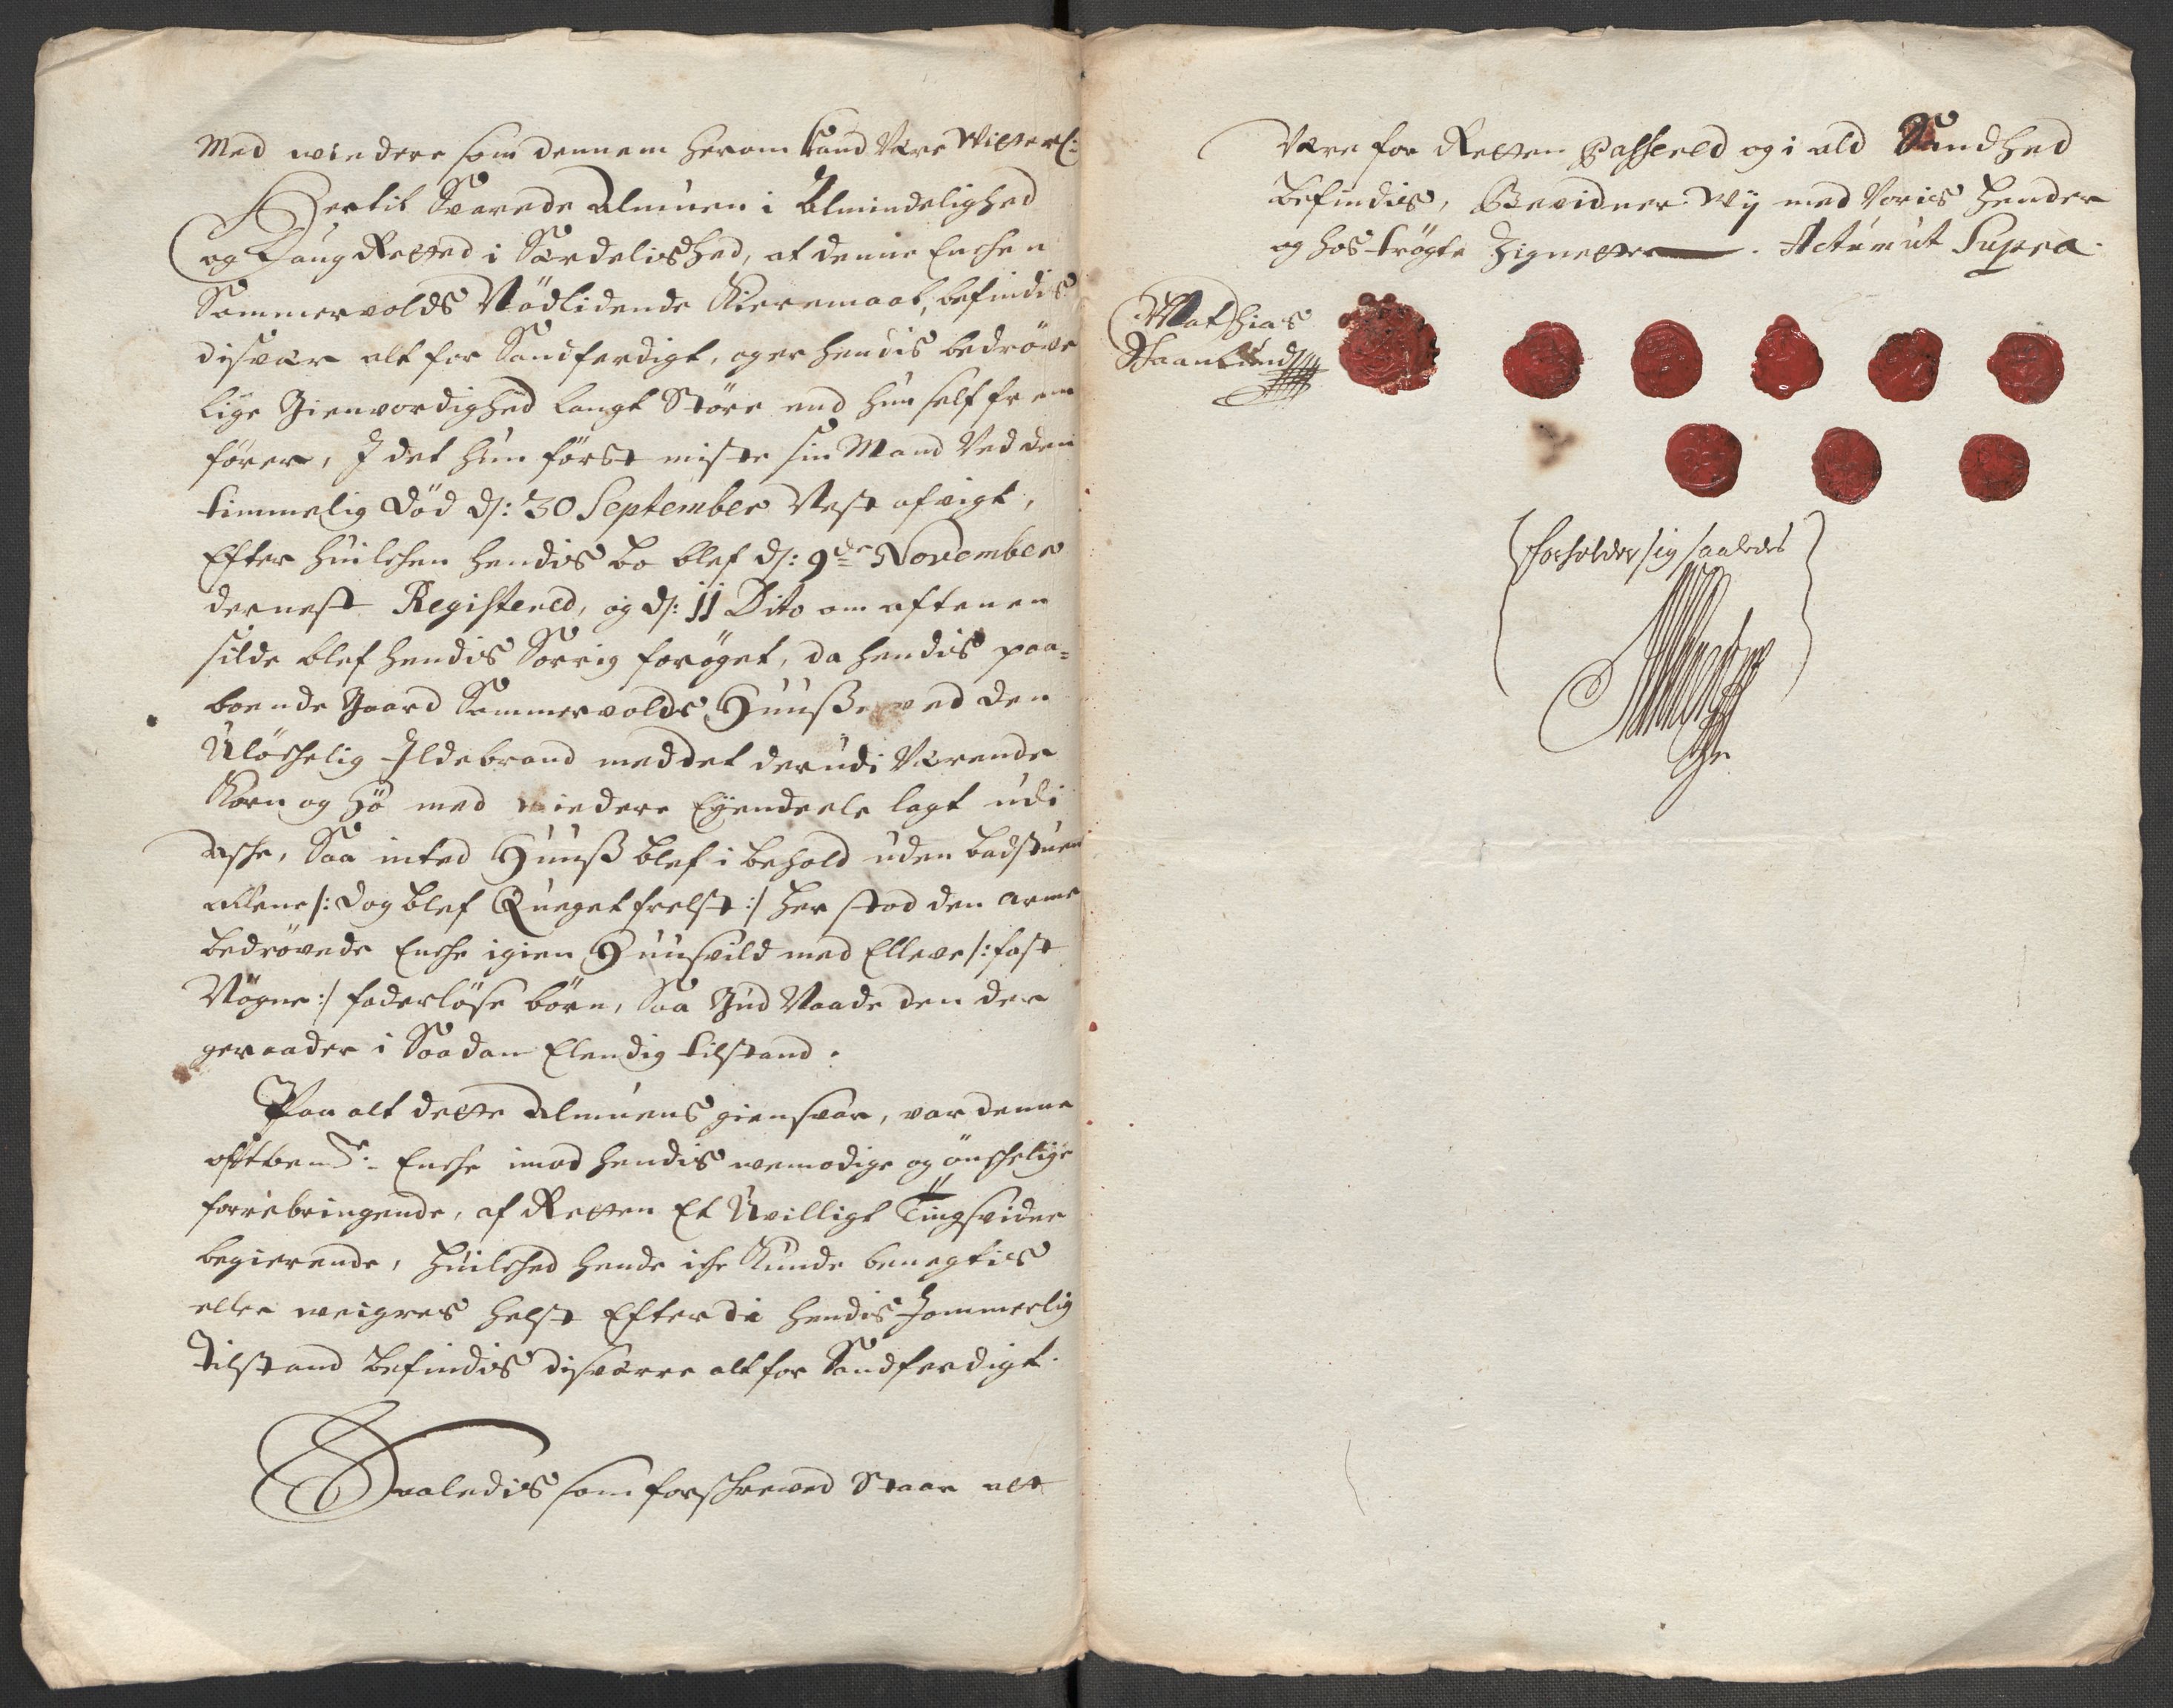 Med wiedere som dennem herom kand Være Witterl:
Hertil Svarede Almuen i Almindelighed
og Laug Retted i Særdelished, at denne Enchen
Sommervolds Nödlidende Kieremaal, befindis
disvær alt for Sandferdigt, og er hendis bedröve
lige Gienvordighed langt Störe end hun self frem
förer, I det hun först miste sin Mand Ved den
timmelig död d: 30 September Nest afvigt,
Efter huilchen hendis bo blef d: 9de November
dernest Registered, og d: 11 Dito om aftenen
silde blef hendis Sorrig forøget, da hendis paa=
boende Gaard Sommervolds Huuße ved den
Ulöchelig Ildebrand med det derudi Værende
Korn og Hö med wiedere Eyendeele lagt udi
Asche, Saa inted Huuß blef i behold uden badstuen
allene /: dog blef Queget frelst :/ her stod den arme
bedrövede Enche igien Huusvild med Elleve /: fast
Nögne :/ faderlöse börn, Saa Gud Naade den der
geraader i Saadan Elendig tilstand.
Paa alt dette Almuens giensvar, var denne
oftbemte: Enche imod hendis wemodige og önchelige
forrebringende, af Retten Et Uvilligt Tingsvidne
begierende, huilched hende iche Kunde benegtis
eller weigres helst Efterdi hendis Jammerlig
tilstand befindis disværre alt for Sandferdigt.
Saaledis som forschrewed Staar alt
Være for Retten Passered og i ald Sandhed
befindis, Bevidner Wij med Voris hender
og hos trögte Zignetter. Actum ut Supra.
Mathias
Schaanlund
forholder sig saaledes